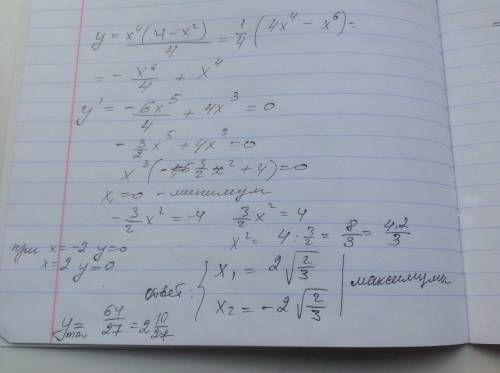 y = x⁴(4 - x²)/4 = 1/4 (4x⁴ - x⁶) =
= - x⁶/4 + x⁴
y' = - 6x⁵/4 + 4x³ = 0
- 3/2 x⁵ + 4x³ = 0
x³(- 3/2 x² + 4) = 0
x₁ = 0 - минимум
- 3/2 x² = -4 3/2 x² = 4
x² = 4 : 3/2 = 8/3 = 4.2/3
при x = -2 y = 0
x = 2 y = 0
ответ: { x₁ = 2√(2/3)
x₂ = - 2√(2/3) | максимумы
y max = 64/27 = 2 10/27